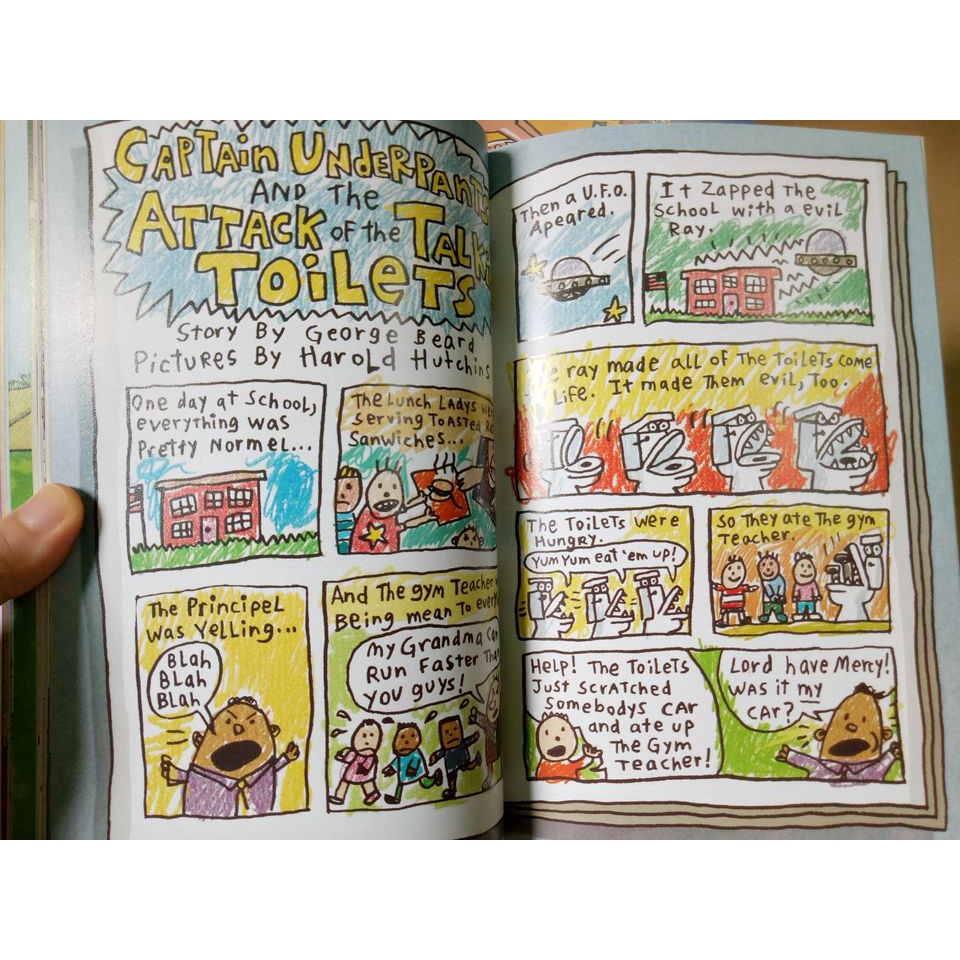 CAPTAIN UNDERPANTS
AND THE
ATTACK OF the
TOILETS
Story By George Beard
Pictures By Harold Hutchins
One day at School,
everything was
Pretty Normel...
The Lunch Ladys
serving Toasted
Sanwiches...
The Principel
was Yelling...
BLah
BLah
BLah
And The gym Teacher
Being mean To
my Grandma can
Run Faster Than
you guys!
Then a U.F.O.
Apeared.
It Zapped The
School with a evil
Ray.
ray made all of The Toilets come
Life. It made Them evil, Too.
The Toilets were
Hungry.
Yum Yum eat 'em up!
So They ate The gym
Teacher.
Help! The Toilets
Just scratched
Somebodys car
and ate up
The Gym
Teacher!
Lord have Mercy!
was it my
car?